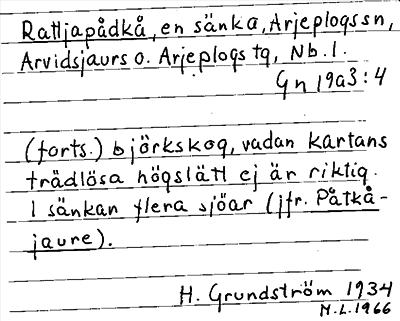 Rattjapådkå, en sänka, Arjeplogs sn,
Arvidsjaurs o. Arjeplogs tg, Nb. l.
Gn 19a3:4
(forts.) björkskog, vadan kartans
trädlösa högslätt ej är riktig.
I sänkan flera sjöar (jfr. Påtkå-
jaure).
H. Grundström 1934
M.L. 1966